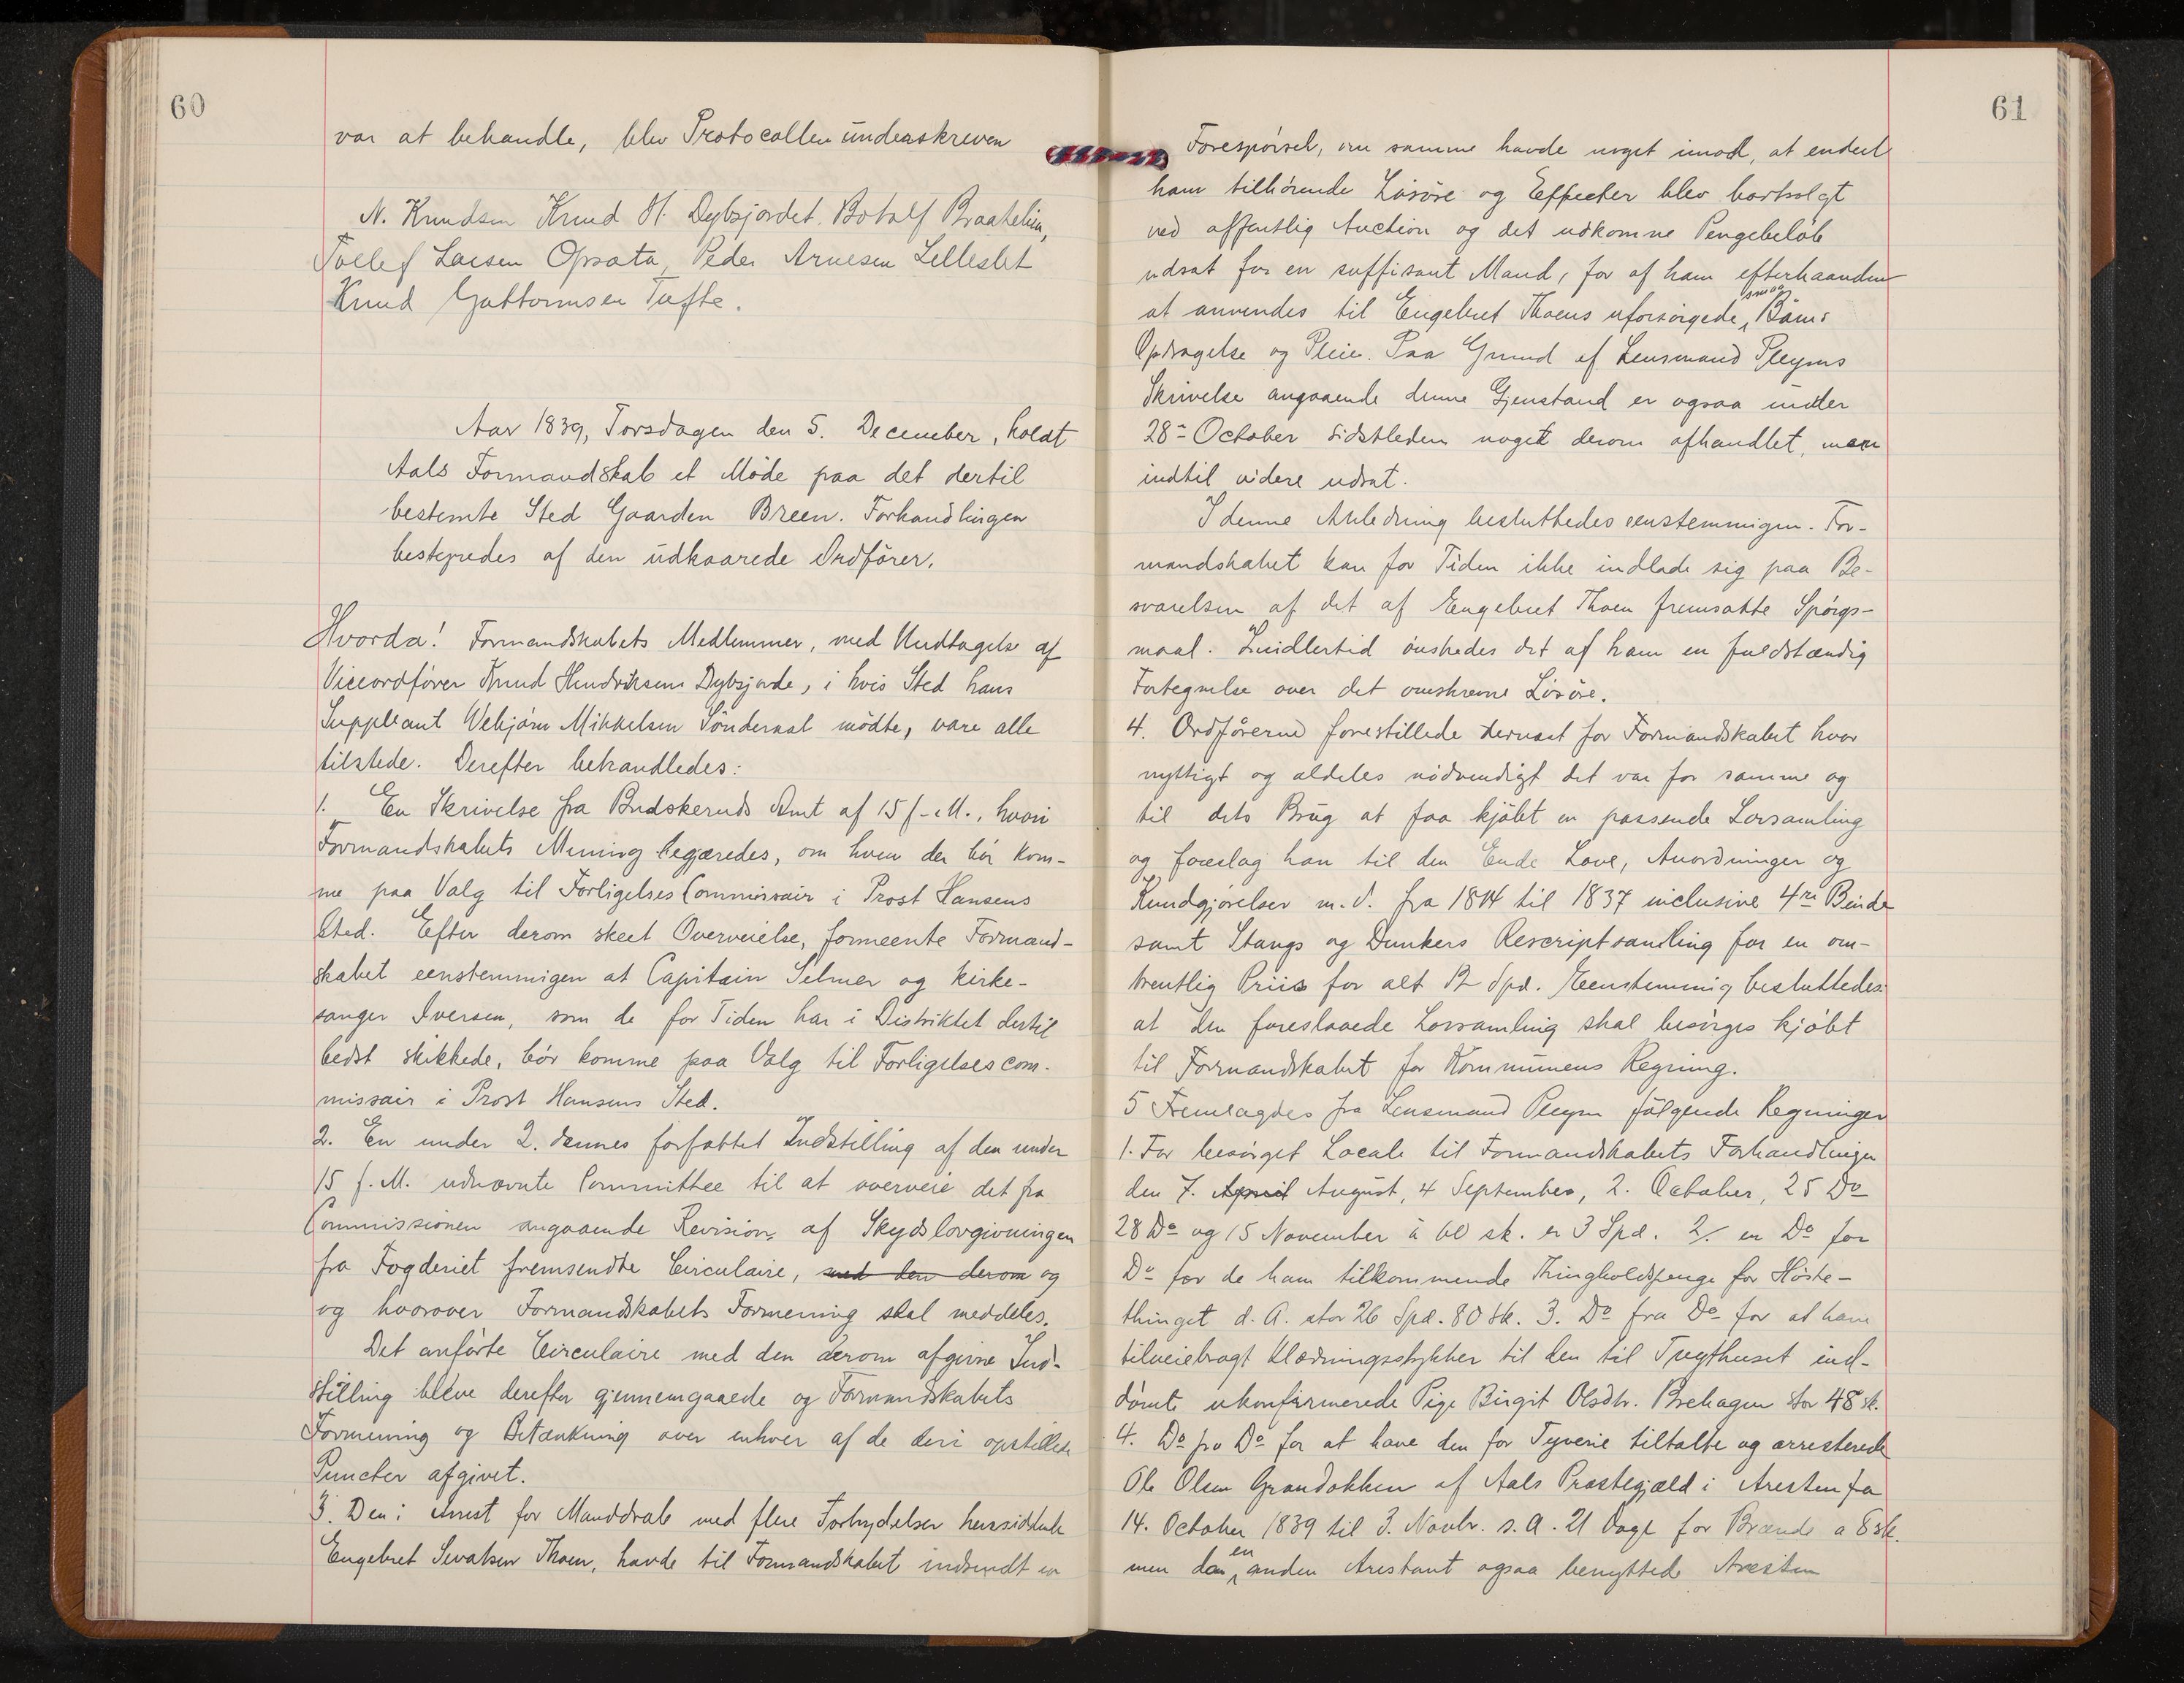 60
var at behandle, blev Protocollen underskreven
N. Knudsen Knud H. Dybsjordet. Botolf Braathelim,
Tollef Larsen Opsata, Peder Arnesen Lilleslet
Knud Guttormsen Tufte.
Aar 1839, Torsdagen den 5. December, holdt
Aals Formandskab et Möde paa det dertil
bestemte Sted Gaarden Breen. Forhandlingen
bestyredes af den udkaarede Ordförer.
Hvorda! Formandskabets Medlemmer, med Undtagelse af
Viceordförer Knud Hendriksen Dybsjorde, i hvis Sted hans
Suppleant Vebjörn Mikkelsen Sönderaal mödte, vare alle
tilstede. Derefter behandledes:
1. En Skrivelse fra Budskeruds Amt af 15 f. M., hvori
Formandskabets Mening begjæredes, om hvem der bör kom-
me paa Valg til Forligelses Commissair i Prost Hansens
Sted. Efter derom skeet Overveielse, formeente Formand-
skabet eenstemmigen at Capitain Selmer og Kirke-
sanger Iversen, som de for Tiden her i Distriktet dertil
bedst skikkede, bör komme paa Valg til Forligelsescom-
missair i Prost Hansens Sted.
2. En under 2. dennes forfattet Indstilling af den under
15 f. M. udnævnte Committee til at overveie det fra
Commissionen angaaende Revision af Skydslovgivningen
fra Fogderiet fremsendte Circulaire, med den derom og
og hvorover Formandskabets Formening skal meddeles.
Det anförte Circulaire med den derom afgivne Ind-
stilling bleve derefter gjennemgaaede og Formandskabets
Formening og Betænkning over enhver af de deri opstillede
Puncter afgivet.
3. Den i Arrest for Manddrab med flere Forbrydelser hensiddende
Engebret Sevatsen Thoen, havde til Formandskabet indsendt en
61
Forespörsel, om samme havde noget imod, at endeel
ham tilhörende Lösöre og Effecter blev bortsolgt
ved offentlig Auction og det udkomne Pengebelöb
udsat for en suffisant Mand, for af ham efterhaanden
at anvendes til Engebret Thoens uforsörgede smaa Börns
Opdragelse og Pleie. Paa Grund af Lensmand Pleyms
Skrivelse angaaende denne Gjenstand er ogsaa under
28de October sidstleden noget derom afhandlet, men
indtil videre udsat.
I denne Anledning besluttedes eenstemmigen. For-
mandskabet kan for Tiden ikke indlade sig paa Be-
svarelsen af det af Engebret Thoen fremsatte Spörgs-
maal. Imidlertid önskedes det af ham en fuldstændig
Fortegnelse over det omskrevne Lösöre.
4. Ordföreren forestillede dernæst for Formandskabet hvor
nyttigt og aldeles nödvendigt det var for samme og
til dets Brug at faa kjöbt en passende Lovsamling
og foreslog han til den Ende Love, Anordninger og
Kundgjörelser m. v. fra 1814 til 1837 inclusive 4re Binde
samt Stangs og Dunkers Rescriptsamling for en om-
trentlig Priis for alt 12 Spd. Eenstemmig besluttedes:
at den foreslaaede Lovsamling skal besörges kjöbt
til Formandskabet for Kommunens Regning.
5 Fremlagdes fra Lensmand Pleym fölgende Regninger
1. For besörget Locale til Formandskabets Forhandlinger
den 7. April August, 4 September, 2. October, 25 Do
28 Do og 15 November à 60 sk. er 3 Spd. 2/. en Do for
Do for de ham tilkommende Thingholdspenge for Höste-
thinget d. A. stor 26 Spd. 80 sk. 3. Do fra Do for at have
tilveiebragt Klædningsstykker til den til Tugthuset ind-
dömte ukonfirmerede Pige Birgit Olsdtr. Brehagen stor 48 sk.
4. Do fra Do for at have den for Tyverie tiltalte og arresterede
Ole Olsen Grandokken af Aals Præstegjæld i Aresten fra
14. October 1839 til 3. Novbr. s. A. 21 Dage for Brænde a 8 sk.
men da en anden Arrestant ogsaa benyttede Aresten